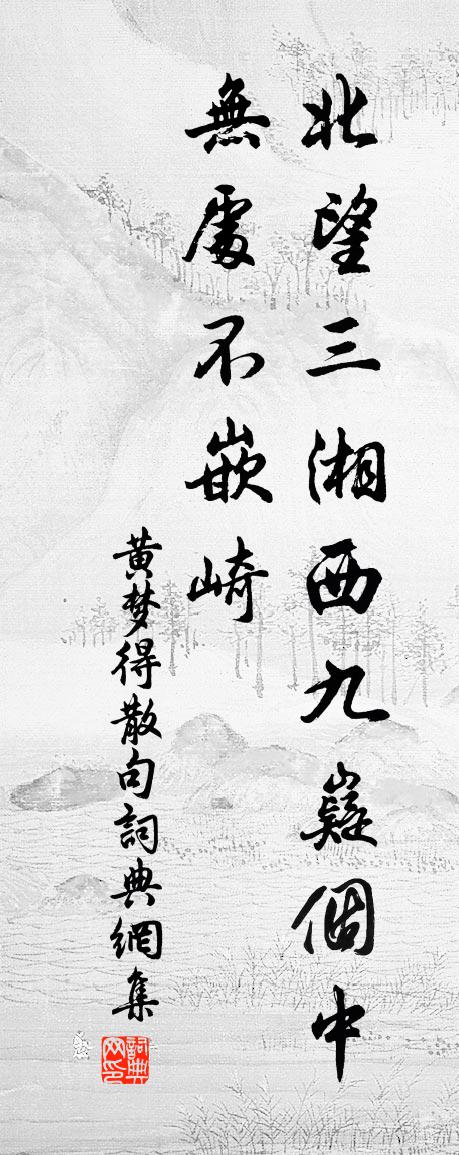 北望三湘西九嶷個中
無處不嵌崎
黄梦得散句詞典網集
詞典网印